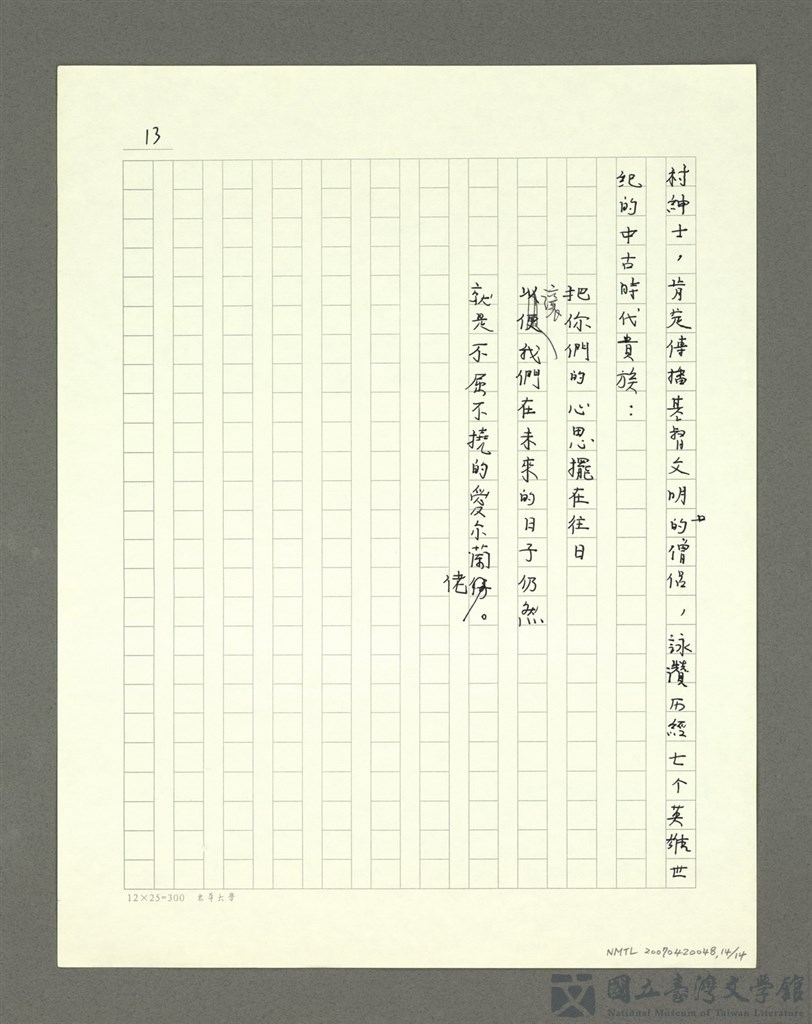 13
村紳士，肯定傳播基督文明的中僧侶，詠讚历經七个英雄世
紀的中古時代貴族：
把你們的心思擺在往日
讓
以便我們在未來的日子仍然
就是不屈不撓的愛尔蘭佬。
12×25=300 東華大學
NMTL 20070420048, 14/14
國立臺灣文學館
National Museum of Taiwan Literature